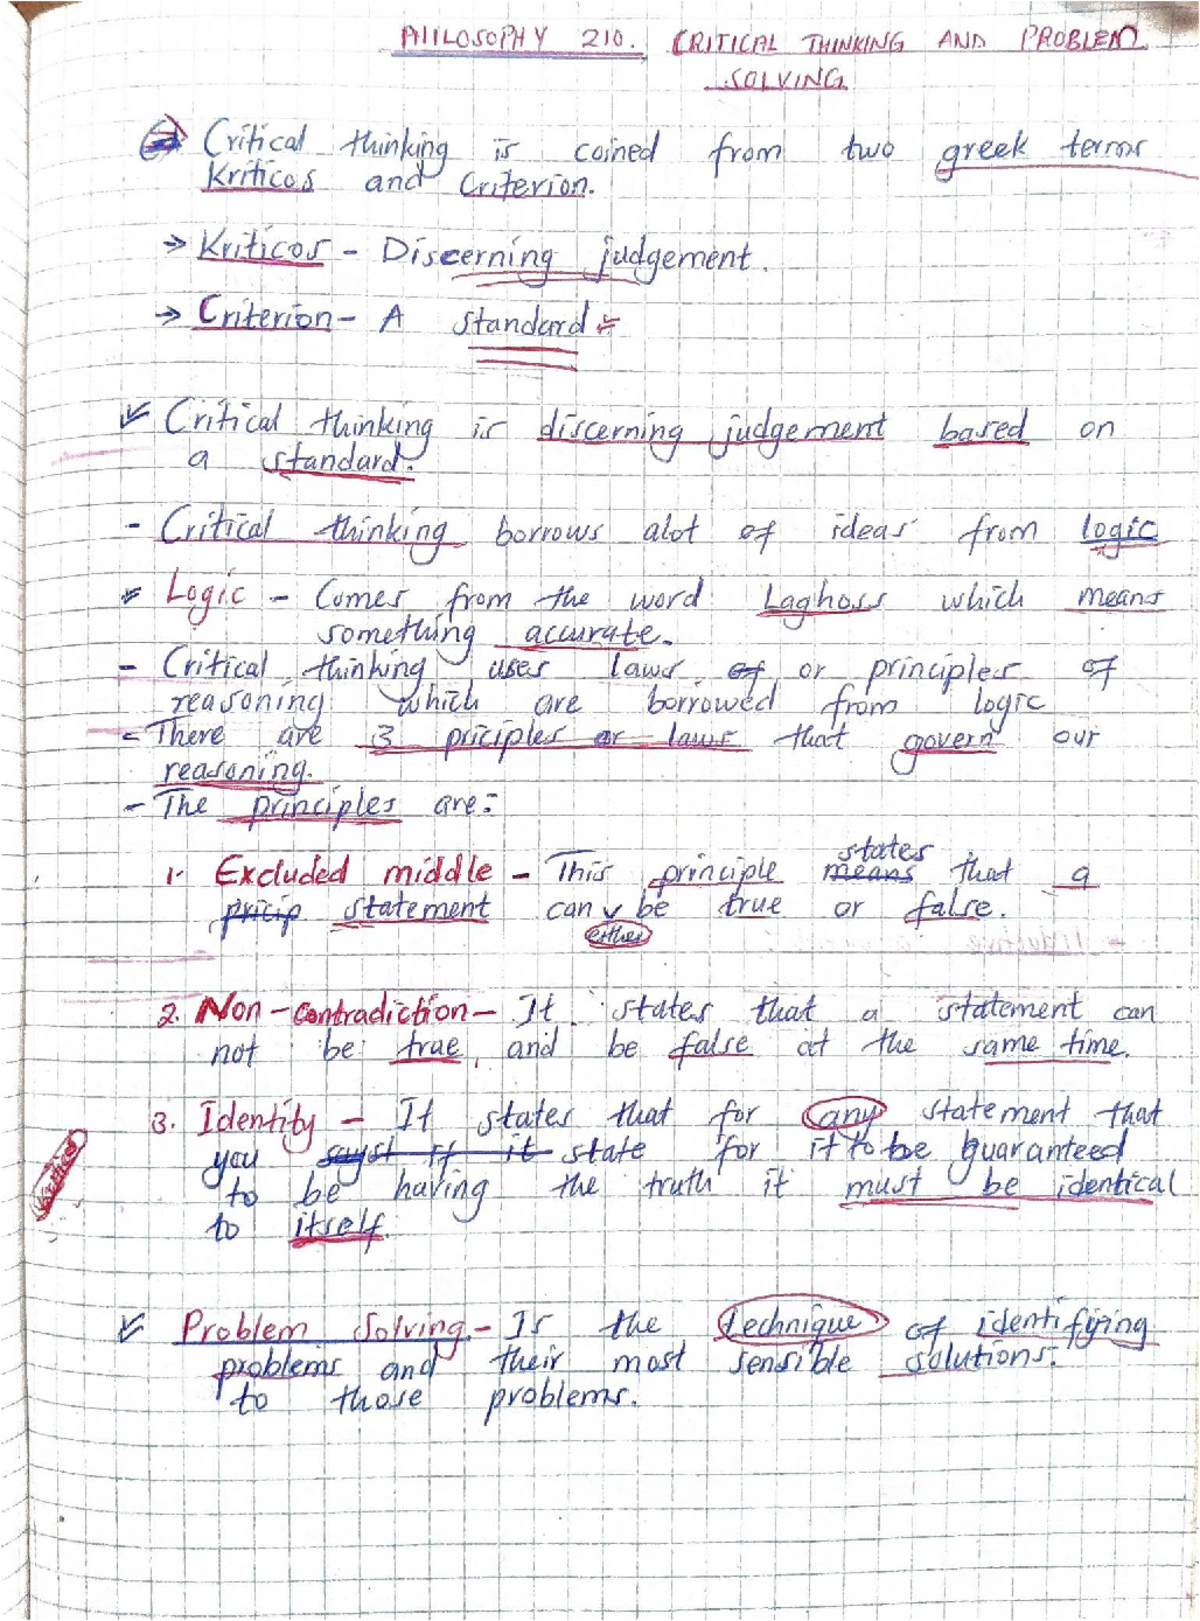 PHILOSOPHY 210. CRITICAL THINKING AND PROBLEM
SOLVING
Critical thinking is coined from two greek terms
Kriticos and Criterion.
→ Kriticos - Discerning judgement.
→ Criterion - A standard
Critical thinking is discerning judgement based on
a standard.
- Critical thinking borrows alot of ideas from logic
Logic - Comes from the word Laghoss which means
something accurate.
- Critical thinking uses laws of or principles of
reasoning which are borrowed from logic
- There are 3 priciples or laws that govern our
reasoning.
- The principles are:
states
1. Excluded middle - This principle means that a
pricip statement can be true or false.
either
2. Non-contradiction - It states that a statement can
not be true, and be false at the same time.
3. Identity - It states that for any statement that
you if it state for it to be guaranteed
to be having the truth it must be identical
to itself.
Problem Solving - Is the technique of identifying
problems and their most sensible solutions.
to those problems.